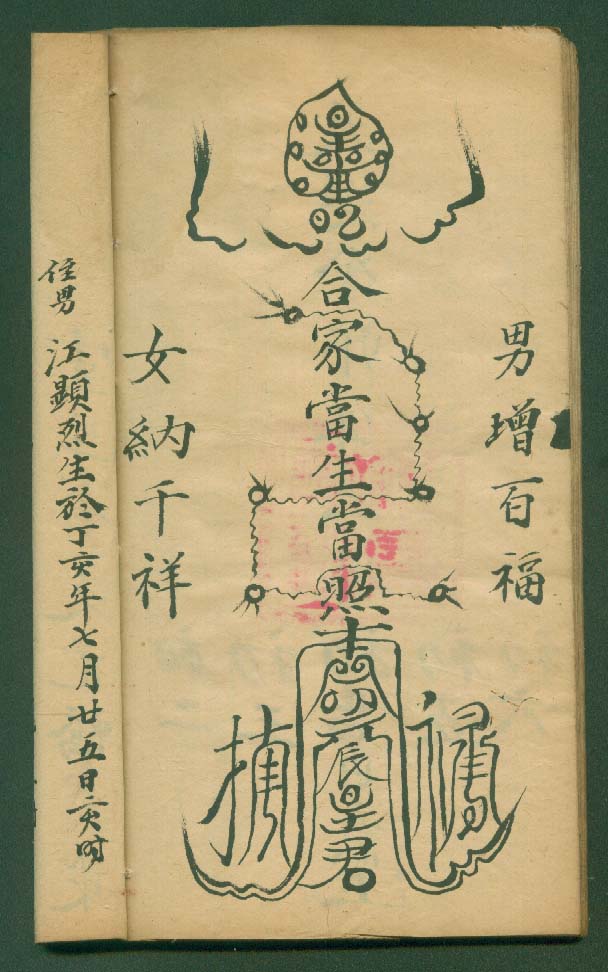 男增百福
合家當生當照
辰星君
女納千祥
侄男 江顯烈生於丁亥年七月廿五日亥时